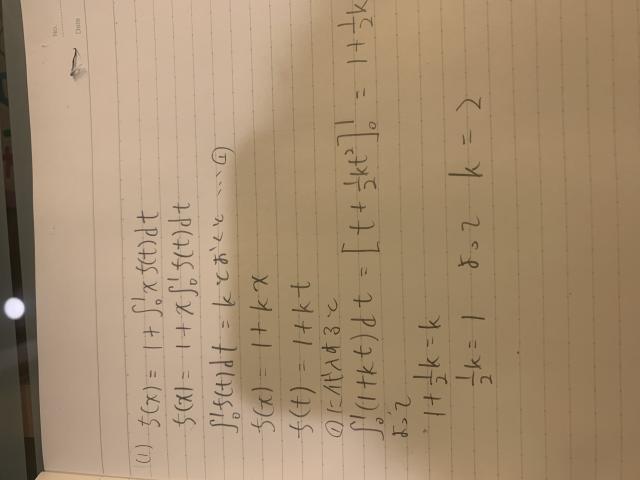 No.
Date
(1) f(x) = 1 + ∫₀¹ x f(t) dt
f(x) = 1 + x∫₀¹ f(t) dt
∫₀¹ f(t) dt = k とおくと …①
f(x) = 1 + kx
f(t) = 1 + kt
①に代入すると
∫₀¹ (1 + kt) dt = [t + 1/2 kt²]₀¹ = 1 + 1/2 k
よって
1 + 1/2 k = k
1/2 k = 1 よって k = 2